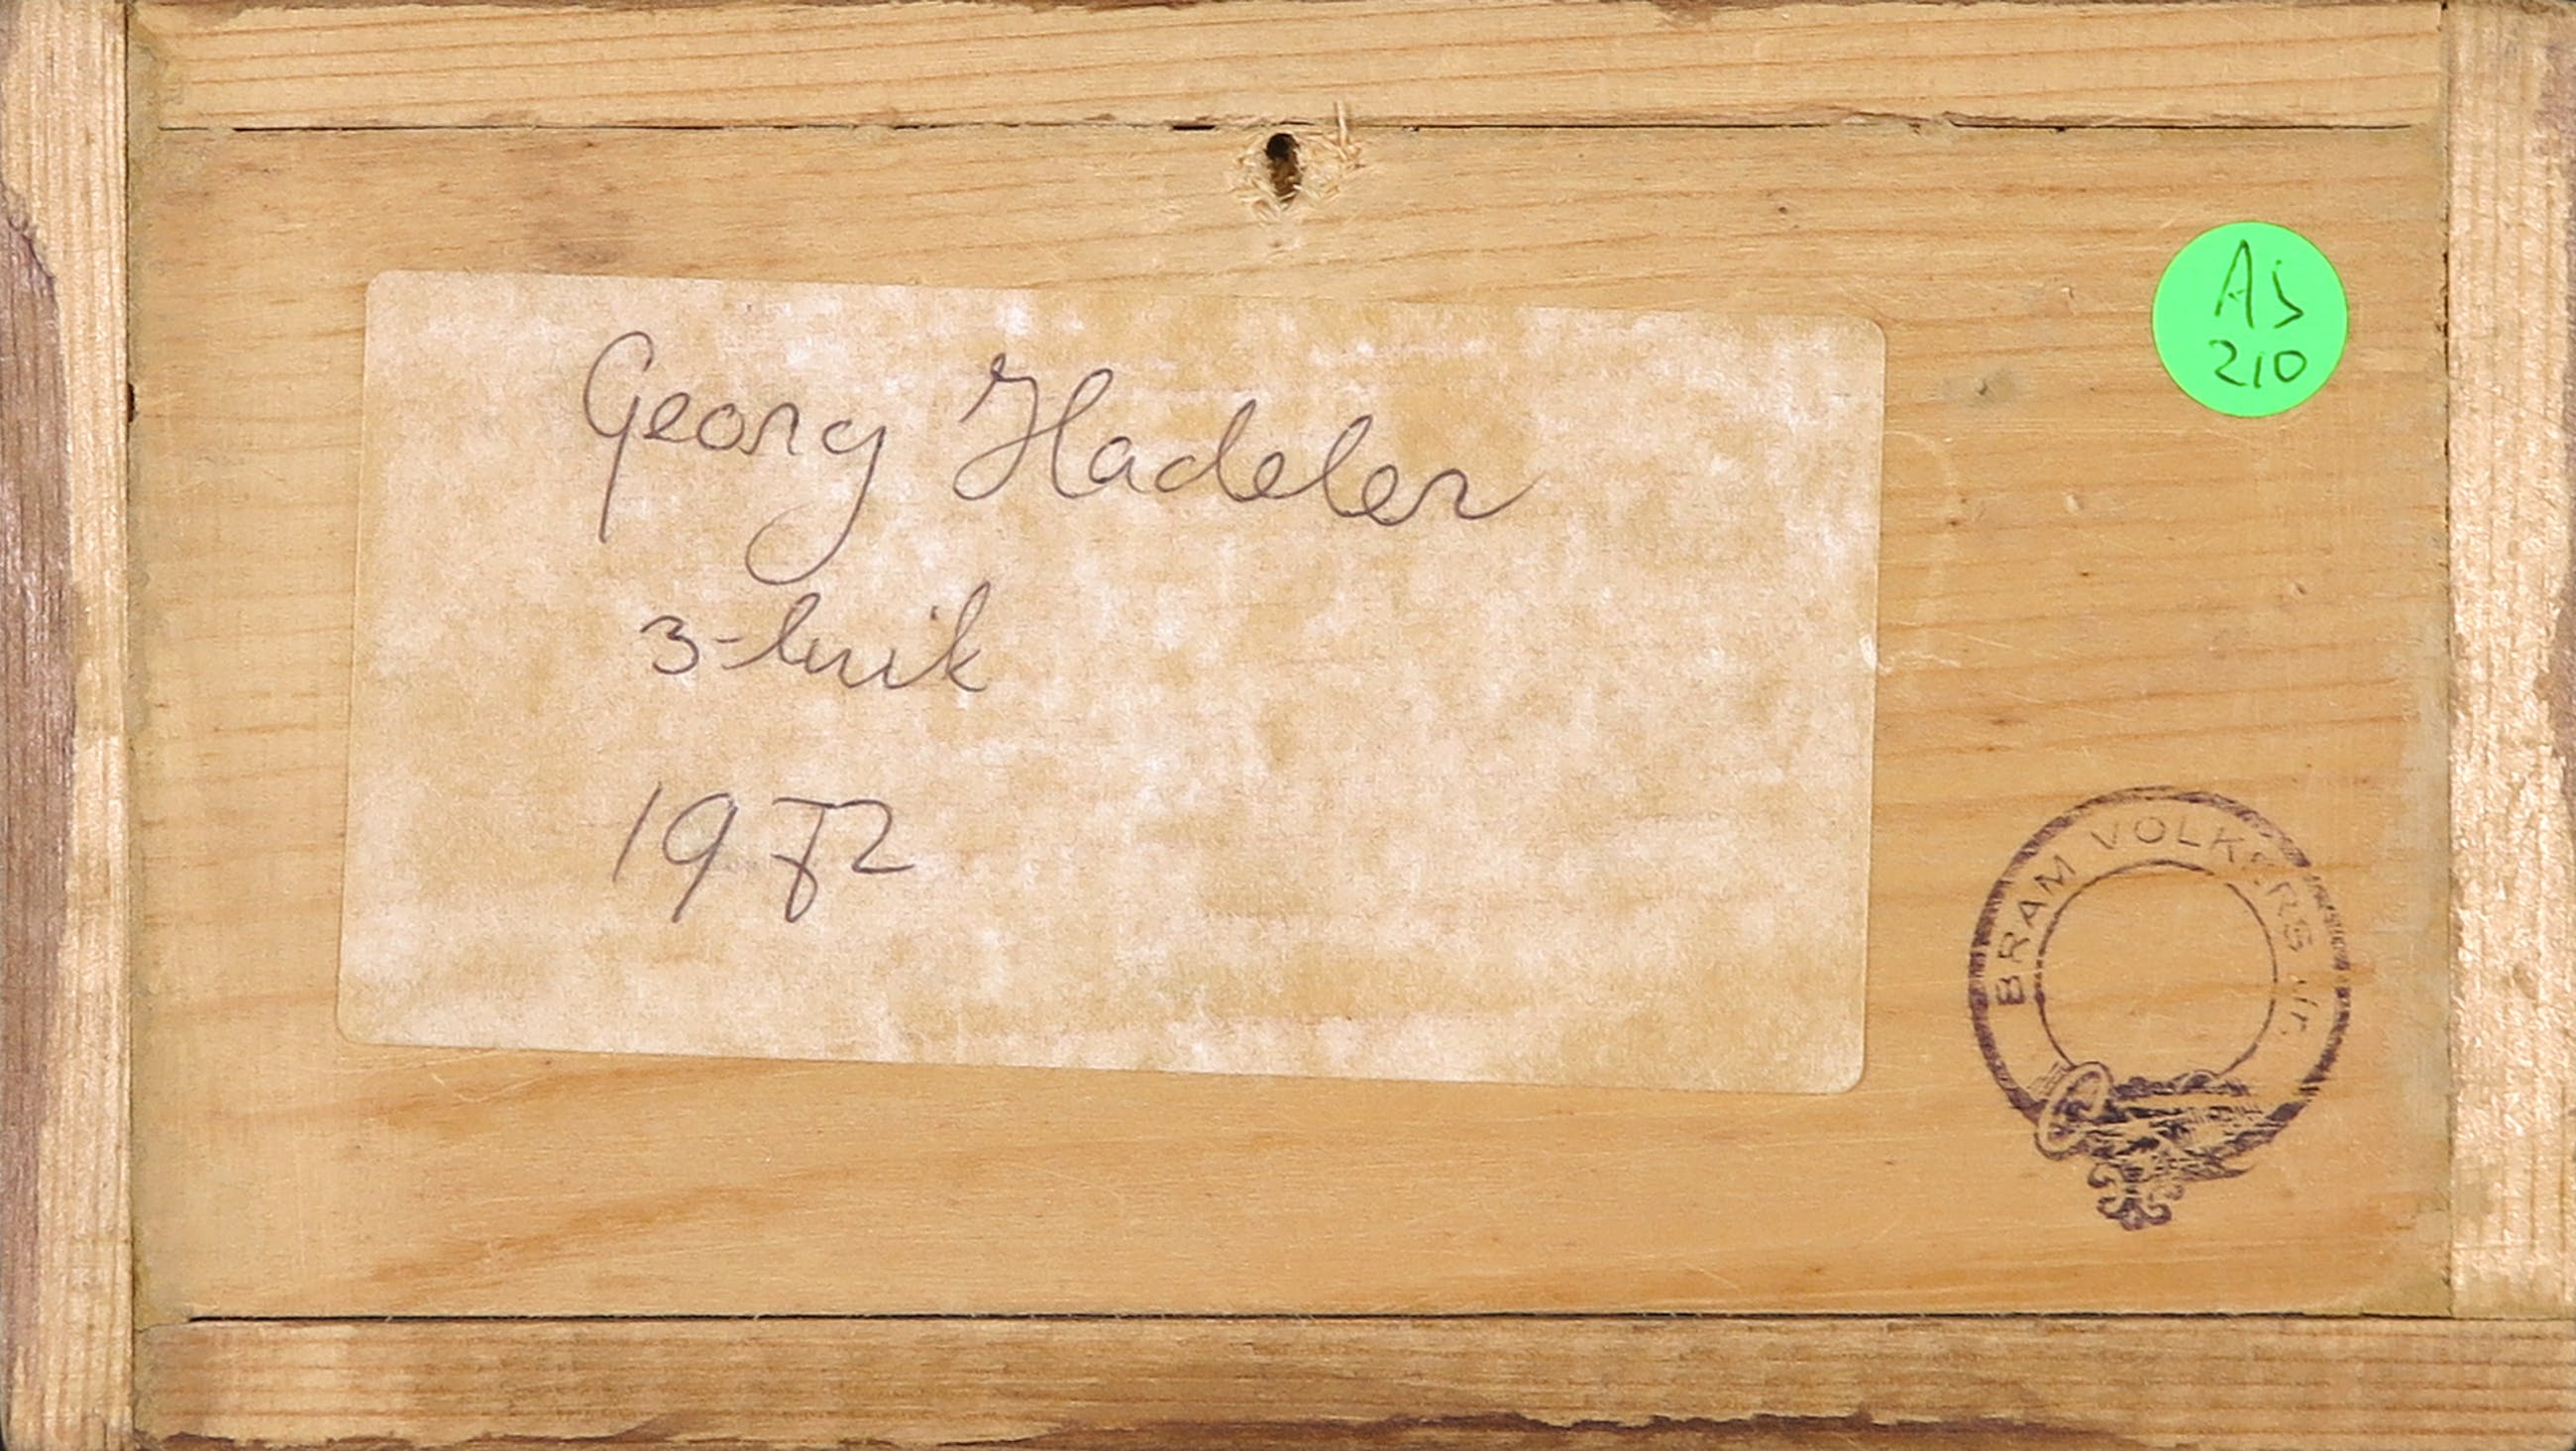 Georg Hadeler
3-luik
1972
AS
210
BRAM VOLKERS Jr.